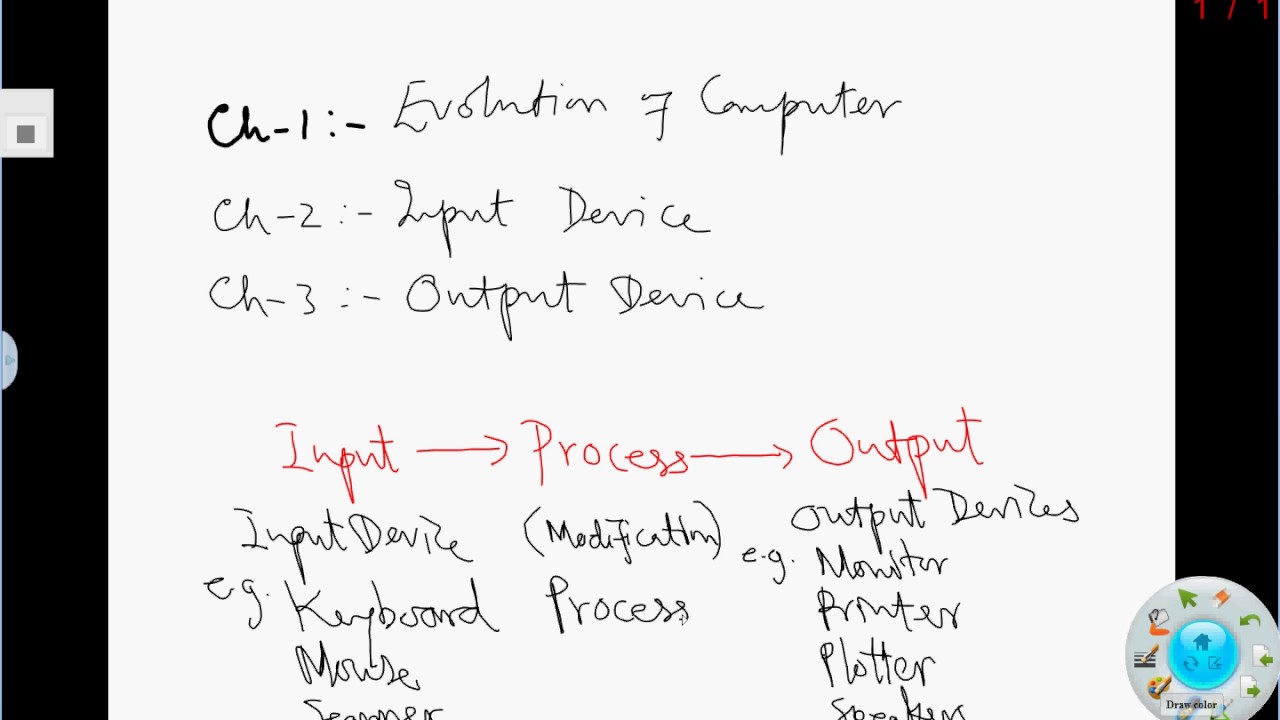 1 / 1
Ch-1:- Evolution of Computer
Ch-2:- Input Device
Ch-3:- Output Device
Input → Process → Output
Input Device (Modification) Output Devices
e.g. Keyboard Process e.g. Monitor
Printer
Mouse Plotter
Scanner Speakers
Draw color